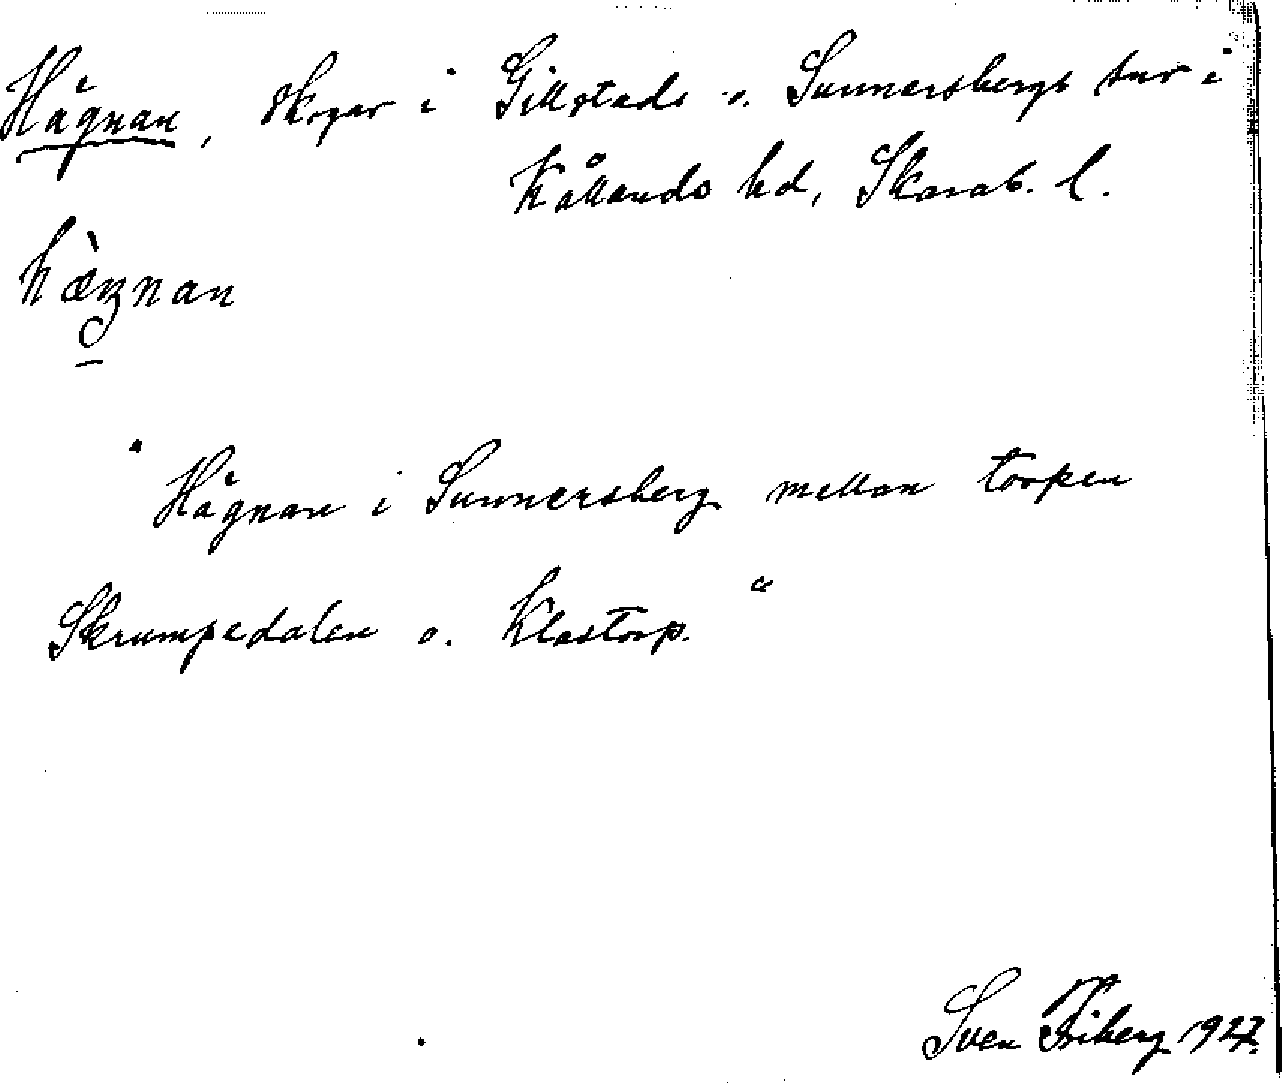 Hägnan, skogar i Gillstads o. Sunnersbergs snr i
Kållands hd, Skarab. l.
hæŋnan
"Hägnan i Sunnersberg mellan torpen
Skrumpedalen o. Klastorp."
Sven Friberg 1927.